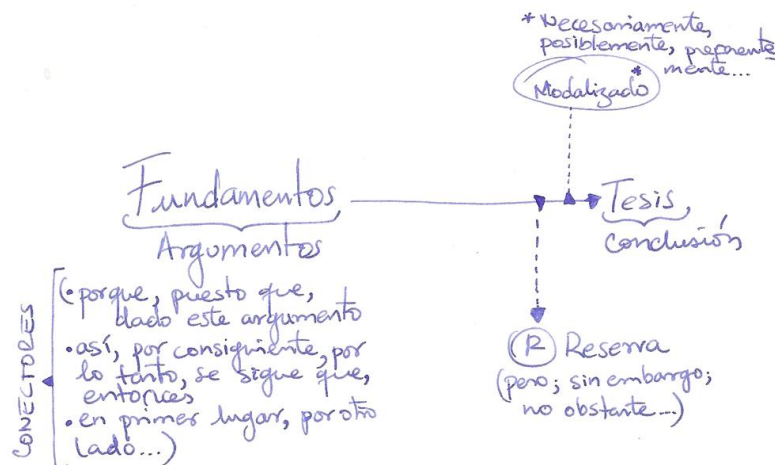 * Necesariamente,
posiblemente,
mente...
Modalizado*
Fundamentos
Argumentos
Tesis,
conclusión
CONECTORES
(• porque, puesto que,
dado este argumento
• así, por consiguiente, por
lo tanto, se sigue que,
entonces
• en primer lugar, por otro
lado...)
R Reserva
(pero; sin embargo;
no obstante...)